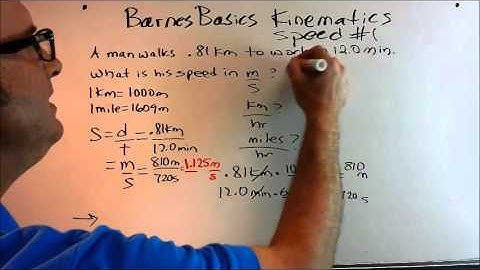 Barnes Basics Kinematics
Speed #1
A man walks .81km to wor 12.0 min.
What is his speed in m/s ?
1km = 1000m
1mile = 1609m
km/hr ?
miles/hr ?
S = d/t = .81km/12.0min
= m/s = 810m/720s = 1.125 m/s
.81km . 10 810 m
12.0 min . 6 720s